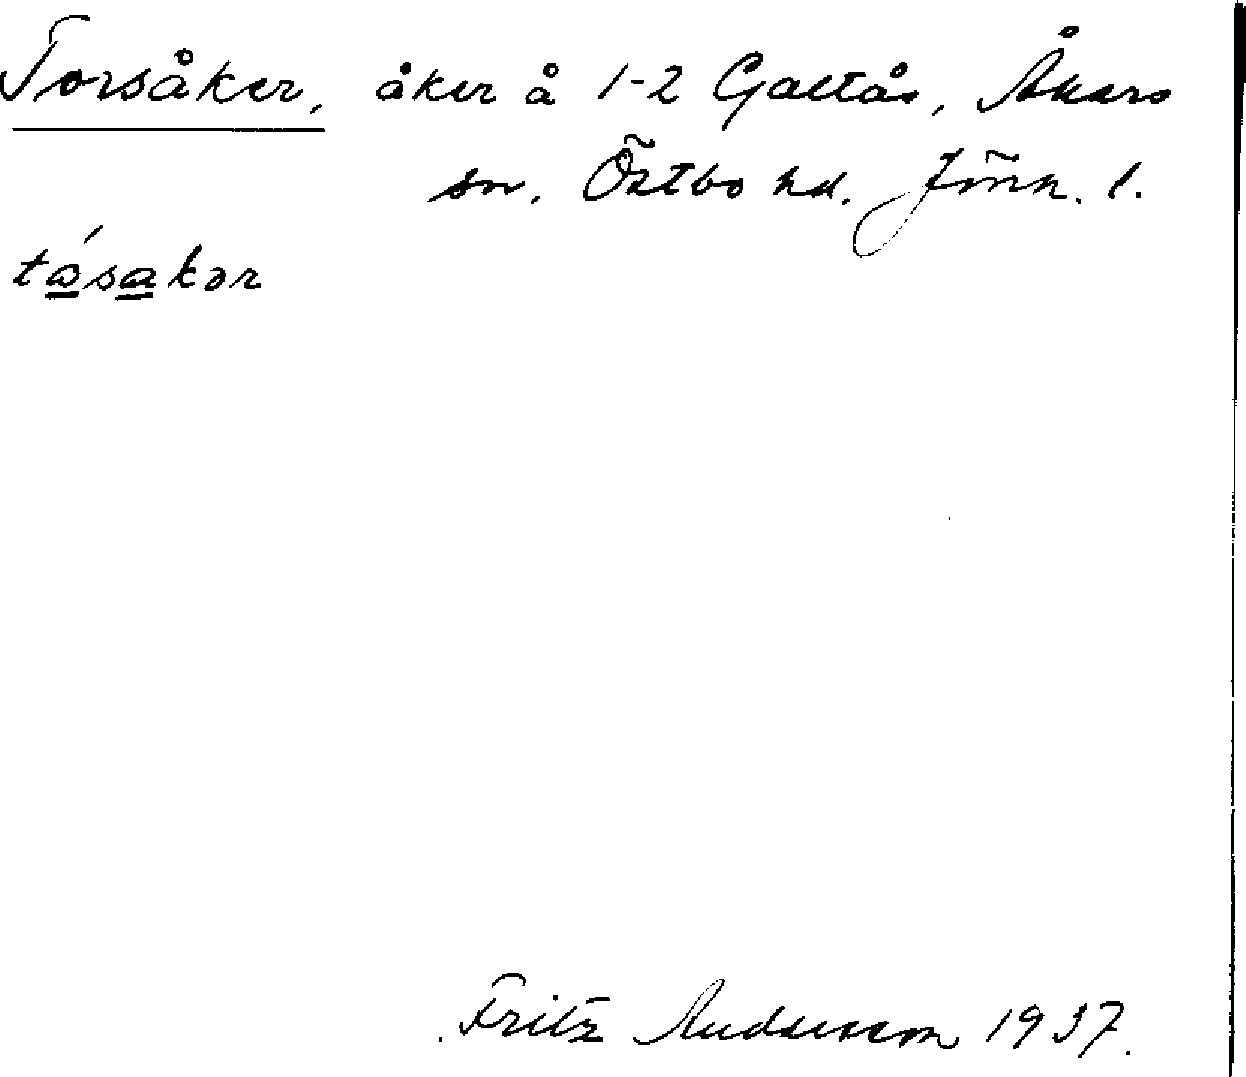 Torsåker, åker å 1-2 Galtås, Åkers
sn. Östbo hd. Jönk. l.
tásakər
Fritz Andersson 1937.